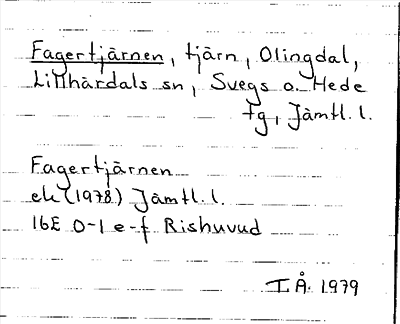 Fagertjärnen, tjärn, Olingdal,
Lillhärdals sn, Svegs o. Hede
tg, Jämtl. l.
Fagertjärnen
ek (1978) Jämtl. l.
16E 0-1 e-f Rishuvud
T.Å. 1979